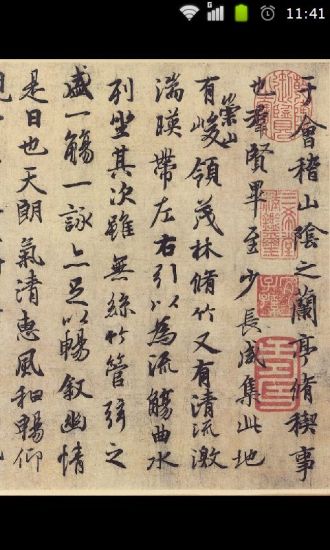 11:41
于會稽山陰之蘭亭脩稧事
也羣賢畢至少長咸集此地
有崇山峻領茂林脩竹又有清流激
湍暎帶左右引以為流觴曲水
列坐其次雖無絲竹管弦之
盛一觴一詠亦足以暢敘幽情
是日也天朗氣清惠風和暢仰